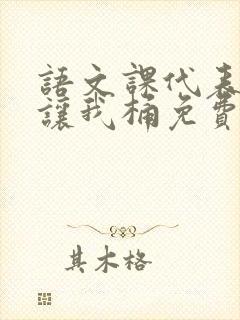 語文課代表
讓我桶免費
其木格